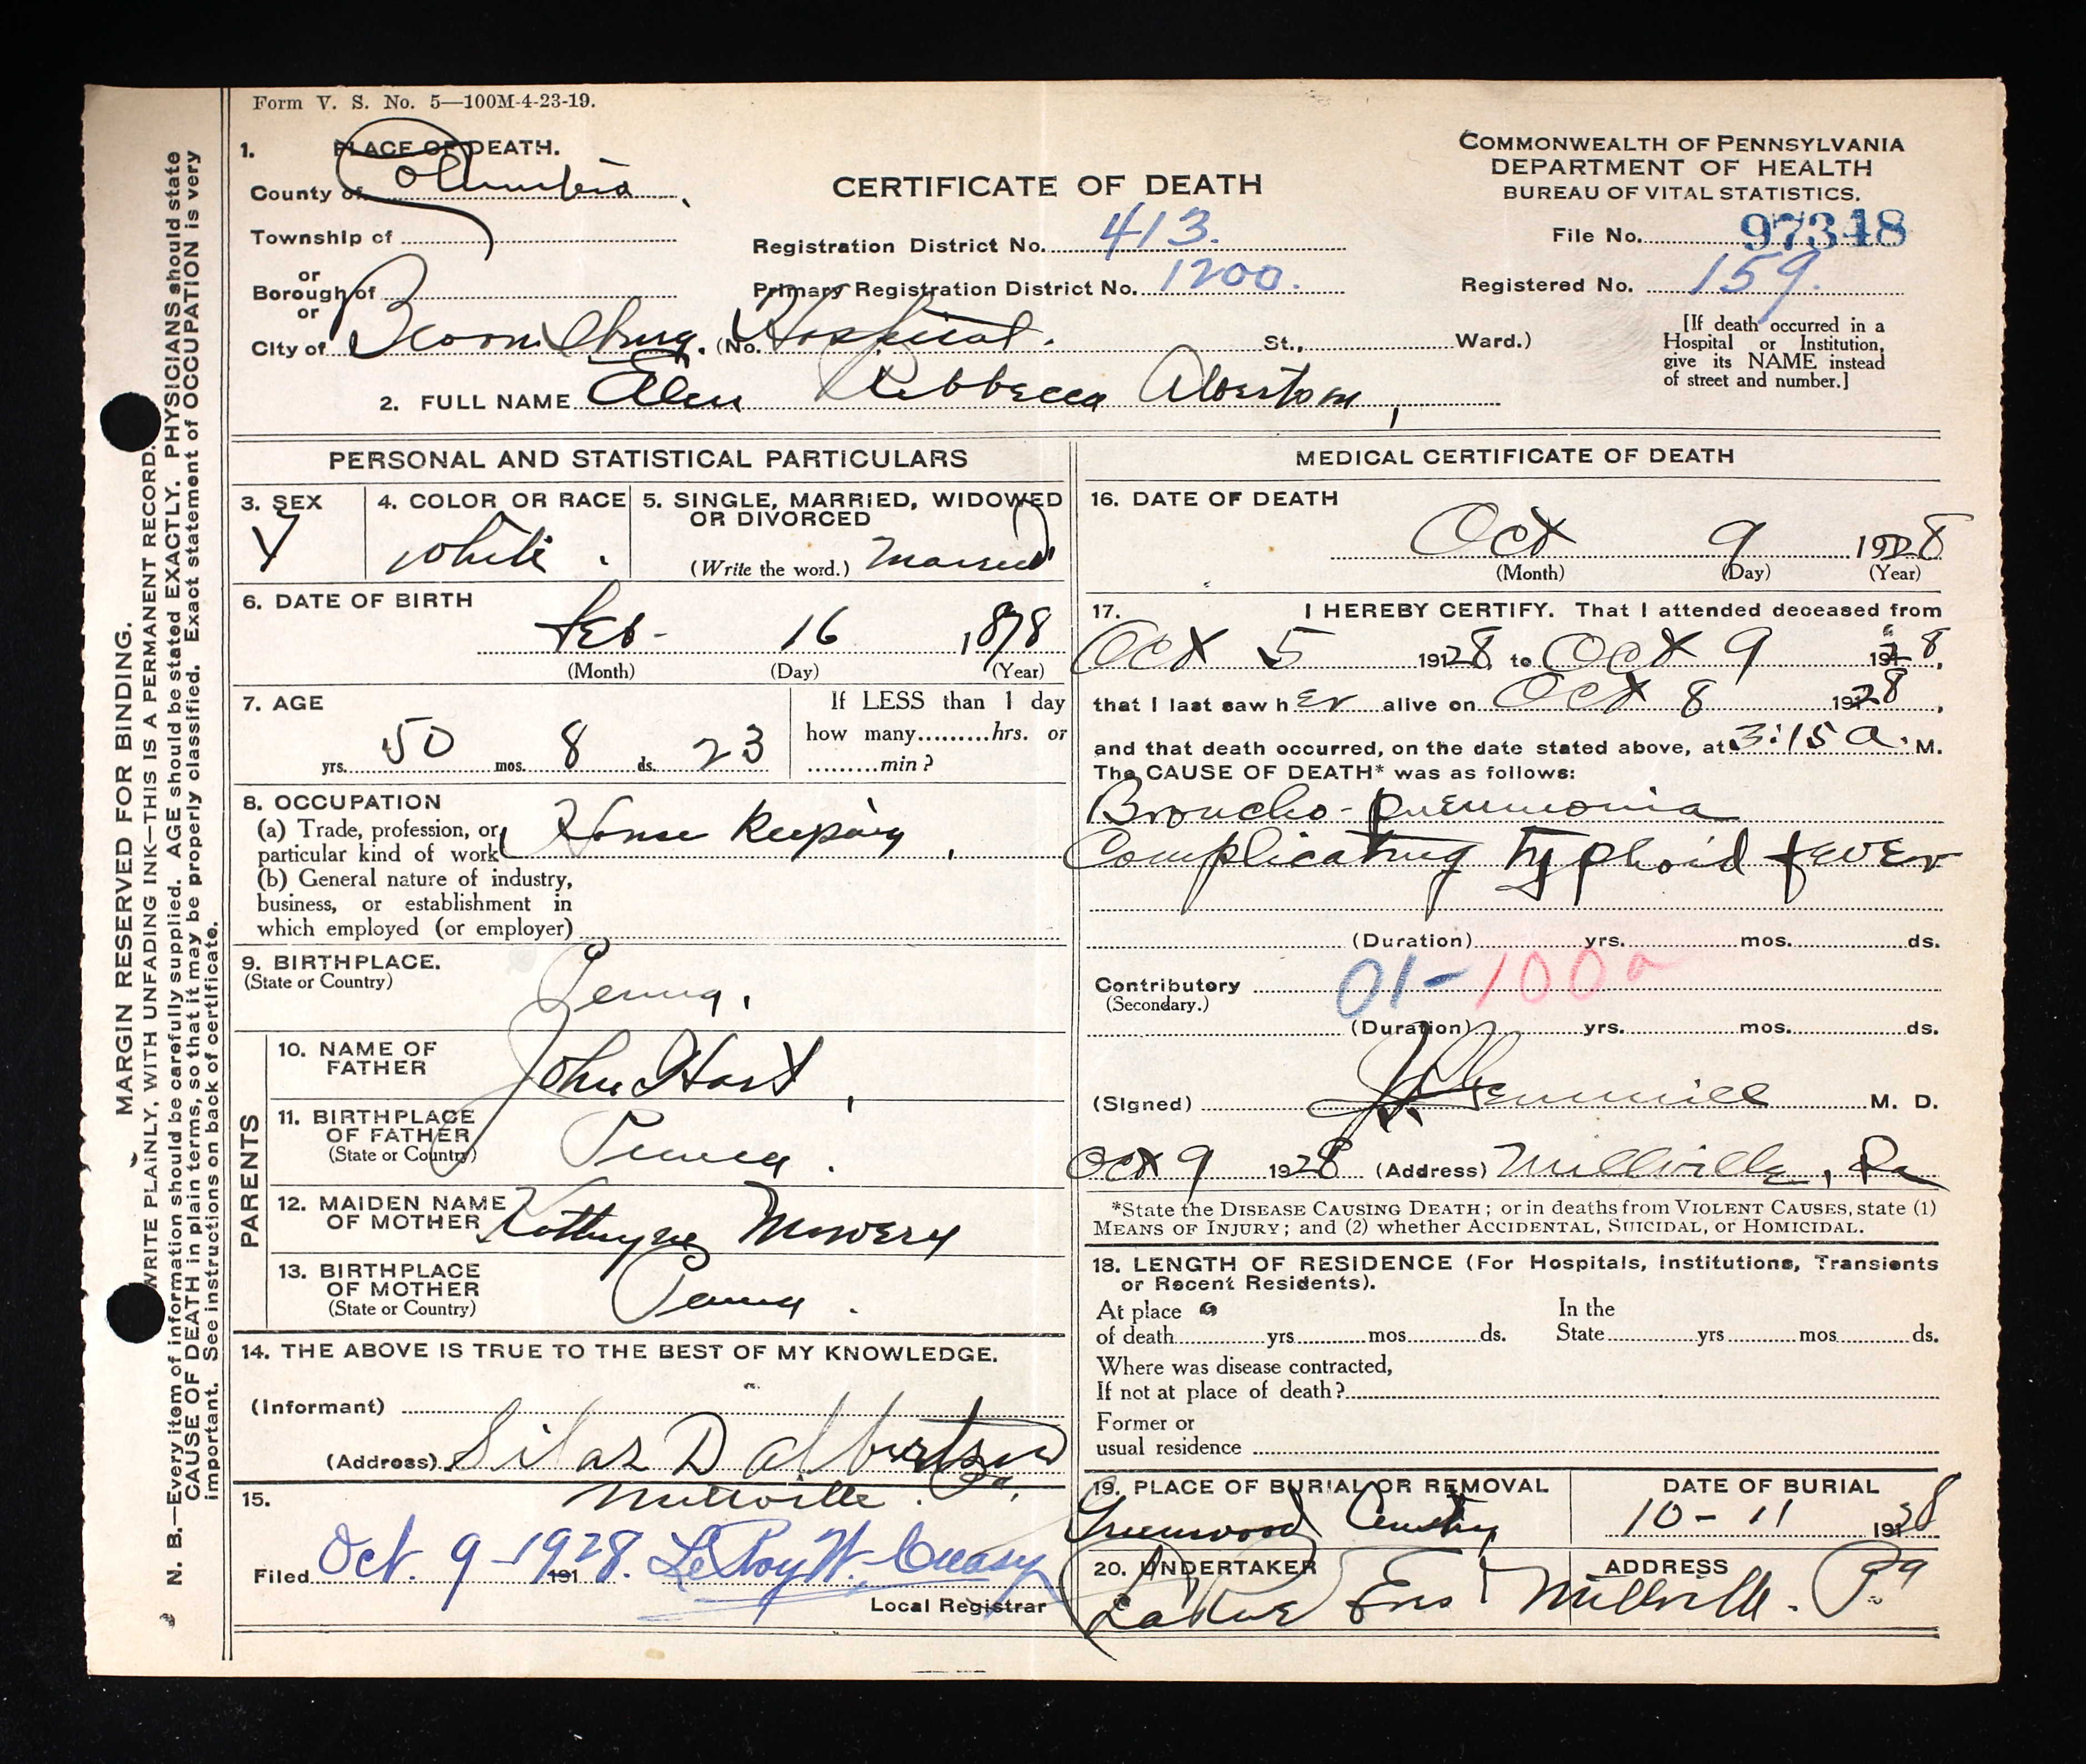 Form V. S. No. 5—100M-4-23-19.
1. PLACE OF DEATH.
County of Columbia
Township of
or
Borough of
or
City of Bloomsburg. (No. Hospital. St., Ward.)
CERTIFICATE OF DEATH
Registration District No. 413.
Primary Registration District No. 1200.
COMMONWEALTH OF PENNSYLVANIA
DEPARTMENT OF HEALTH
BUREAU OF VITAL STATISTICS.
File No. 97348
Registered No. 159.
[If death occurred in a
Hospital or Institution,
give its NAME instead
of street and number.]
2. FULL NAME Ellen Ribbecca
PERSONAL AND STATISTICAL PARTICULARS
3. SEX
4. COLOR OR RACE
White.
5. SINGLE, MARRIED, WIDOWED
OR DIVORCED
(Write the word.) Married
6. DATE OF BIRTH
Feb- 16 1878
(Month) (Day) (Year)
7. AGE
50 yrs. 8 mos. 23 ds.
If LESS than 1 day
how many.........hrs. or
.........min?
8. OCCUPATION
(a) Trade, profession, or
particular kind of work House Keeping,
(b) General nature of industry,
business, or establishment in
which employed (or employer)
9. BIRTHPLACE.
(State or Country)
Penna.
PARENTS
10. NAME OF
FATHER
John Hart,
11. BIRTHPLACE
OF FATHER
(State or Country)
Penna.
12. MAIDEN NAME
OF MOTHER
Kathryne Mowery
13. BIRTHPLACE
OF MOTHER
(State or Country)
Penna.
14. THE ABOVE IS TRUE TO THE BEST OF MY KNOWLEDGE.
(Informant)
(Address) Silas D Albertson
Millville. Pa.
15.
Filed Oct. 9-1928. 191 LeRoy W. Creasy
Local Registrar
MEDICAL CERTIFICATE OF DEATH
16. DATE OF DEATH
Oct 9 1928
(Month) (Day) (Year)
17. I HEREBY CERTIFY. That I attended deceased from
Oct 5 1928, to Oct 9 1928,
that I last saw her alive on Oct 8 1928,
and that death occurred, on the date stated above, at 3:15 a. M.
The CAUSE OF DEATH* was as follows:
Broncho-pneumonia
Complicating typhoid fever
(Duration) yrs. mos. ds.
Contributory 01-100a
(Secondary.)
(Duration) yrs. mos. ds.
(Signed) M. D.
Oct 9 1928 (Address) Millville, Pa
*State the DISEASE CAUSING DEATH; or in deaths from VIOLENT CAUSES, state (1)
MEANS OF INJURY; and (2) whether ACCIDENTAL, SUICIDAL, or HOMICIDAL.
18. LENGTH OF RESIDENCE (For Hospitals, Institutions, Transients
or Recent Residents).
At place
of death yrs mos ds.
In the
State yrs mos ds.
Where was disease contracted,
If not at place of death?
Former or
usual residence
19. PLACE OF BURIAL OR REMOVAL
Greenwood Cemetry
DATE OF BURIAL
10-11 1928
20. UNDERTAKER
ADDRESS
Millville. Pa
MARGIN RESERVED FOR BINDING.
WRITE PLAINLY, WITH UNFADING INK—THIS IS A PERMANENT RECORD.
N. B.—Every item of information should be carefully supplied. AGE should be stated EXACTLY. PHYSICIANS should state
CAUSE OF DEATH in plain terms, so that it may be properly classified. Exact statement of OCCUPATION is very
important. See instructions on back of certificate.